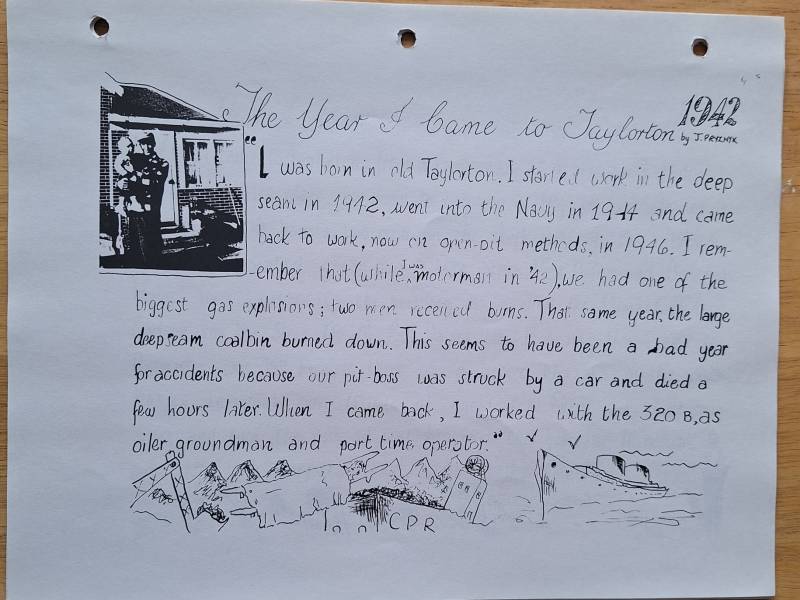 The Year I Came to Taylorton
1942
by J. PRYZNYK
"I was born in old Taylorton. I started work in the deep
seam in 1942, went into the Navy in 1944 and came
back to work, now on open-pit methods, in 1946. I rem-
-ember that (while I was motorman in '42), we had one of the
biggest gas explosions; two men received burns. That same year, the large
deepseam coalbin burned down. This seems to have been a bad year
for accidents because our pit-boss was struck by a car and died a
few hours later. When I came back, I worked with the 320 B, as
oiler, groundman and part time operator."
CPR